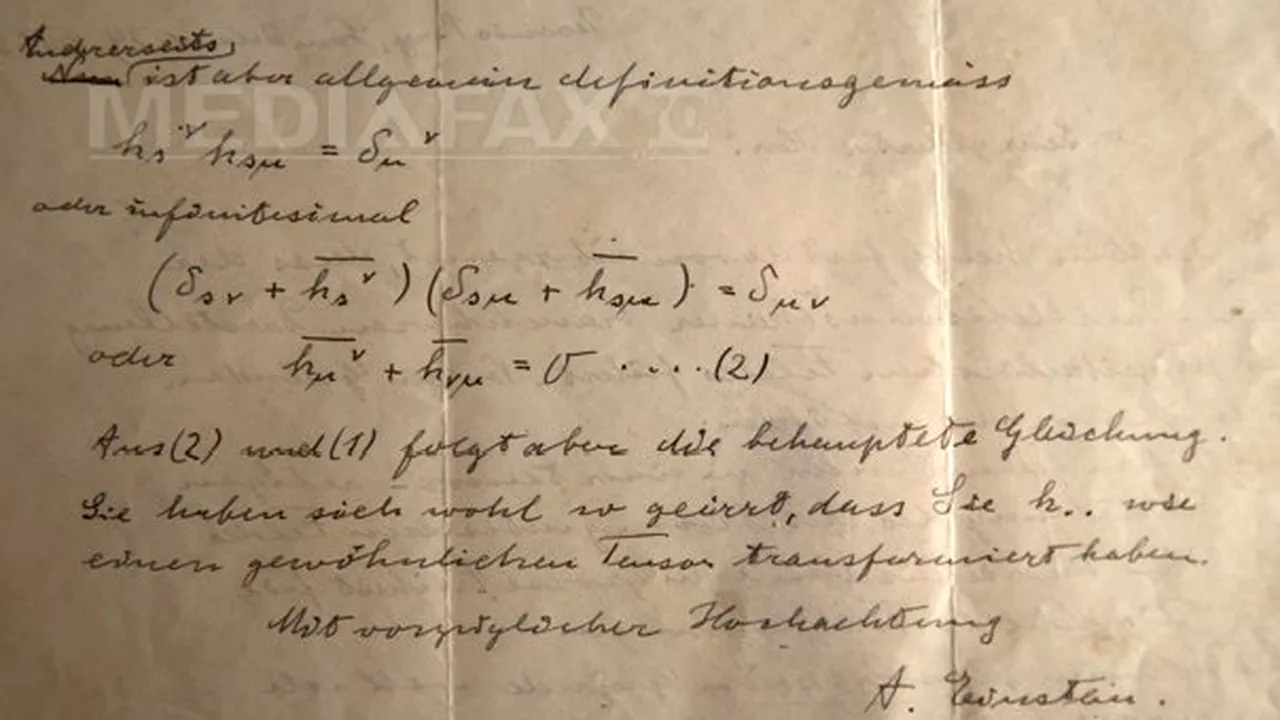 Andrerseits
Nun ist aber allgemein definitionsgemäss
MEDIAFAX
h_s^ν h_{sμ} = δ_μ^ν
oder infinitesimal
(δ_{sν} + \overline{h_s^ν}) (δ_{sμ} + \overline{h_{sμ}}) = δ_{μν}
oder \overline{h_μ^ν} + \overline{h_{νμ}} = 0 ..... (2)
Aus (2) und (1) folgt aber die behauptete Gleichung.
Sie haben sich wohl so geirrt, dass Sie h.. wie
einen gewöhnlichen Tensor transformiert haben.
Mit vorzüglicher Hochachtung
A. Einstein.